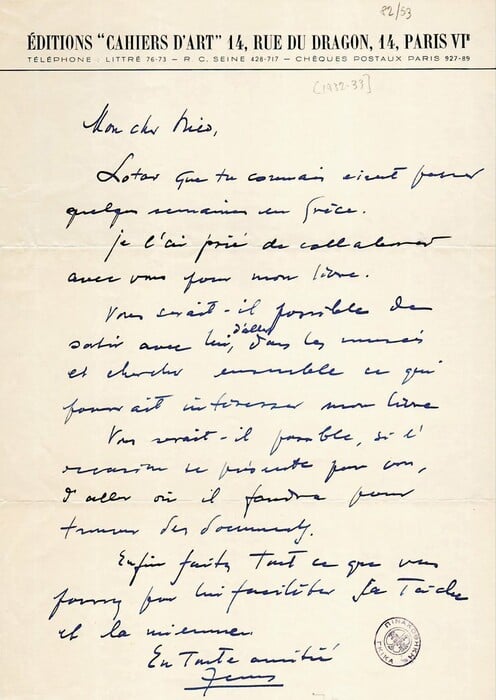 82/53
ÉDITIONS "CAHIERS D'ART" 14, RUE DU DRAGON, 14, PARIS VIe
TÉLÉPHONE: LITTRÉ 76-73 — R. C. SEINE 428-717 — CHÈQUES POSTAUX PARIS 927-89
[1932-33]
Mon cher Nico,
Lotar que tu connais vient passer
quelques semaines en Grèce.
Je l'ai prié de collaborer
avec vous pour mon livre.
Vous serait-il possible de
sortir avec lui, d'aller dans les musées
et chercher ensemble ce qui
pourrait intéresser mon livre
Vous serait-il possible, si l'
occasion se présente pour vous,
d'aller où il faudra pour
trouver des documents.
Enfin faites tout ce que vous
pourrez pour lui faciliter sa tâche
et la mienne.
En toute amitié
ΠΙΝΑΚΟΘΗΚΗ
ΓΚΙΚΑ